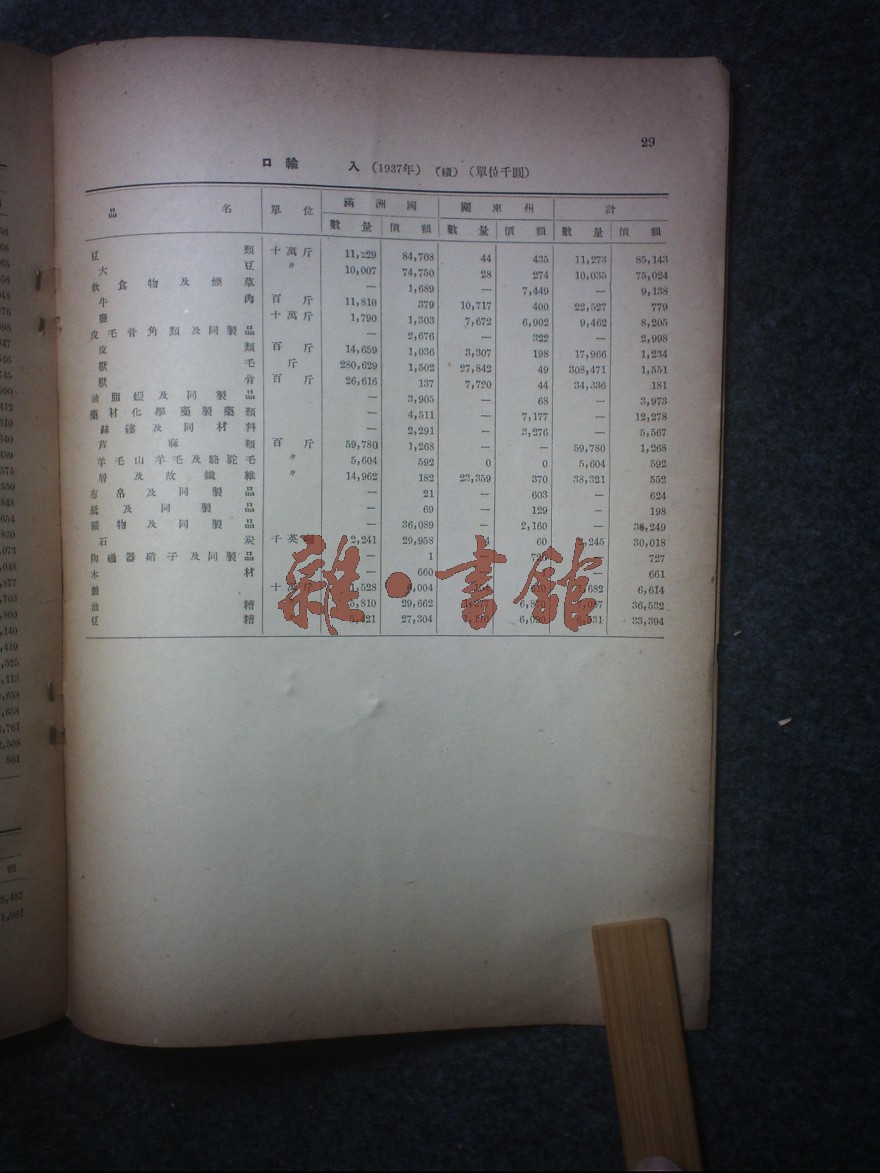 29
ロ 輸 入 (1937年) (續) (單位千圓)
品 名 單 位 滿 洲 國 關 東 州 計
數 量 價 額 數 量 價 額 數 量 價 額
豆 類 十萬斤 11,229 84,708 44 435 11,273 85,143
大 豆 〃 10,007 74,750 28 274 10,035 75,024
飲食物及煙草 — 1,689 — 7,449 — 9,138
牛 肉 百 斤 11,810 379 10,717 400 22,527 779
鹽 十萬斤 1,790 1,303 7,672 6,902 9,462 8,205
皮毛骨角類及同製品 — 2,676 — 322 — 2,998
皮 類 百 斤 14,659 1,036 3,307 198 17,966 1,234
獸 毛 斤 280,629 1,502 27,842 49 308,471 1,551
獸 骨 百 斤 26,616 137 7,720 44 34,336 181
油脂蠟及同製品 — 3,905 — 68 — 3,973
藥材化學藥製藥類 — 4,511 — 7,177 — 12,278
絲縷及同材料 — 2,291 — 3,276 — 5,567
麻 類 百 斤 59,780 1,268 — — 59,780 1,268
羊毛山羊毛及駱駝毛 〃 5,604 592 0 0 5,604 592
屑及故纖維 〃 14,962 182 23,359 370 38,321 552
布帛及同製品 — 21 — 603 — 624
紙及同製品 — 69 — 129 — 198
礦物及同製品 — 36,089 — 2,160 — 38,249
石 炭 千英 2,241 29,958 60 30,018
陶磁器硝子及同製品 — 1 727
木 材 — 660 661
十萬斤 6,614
油 糟 5,810 29,662 36,532
豆 糟 27,304 33,394
雜·書館